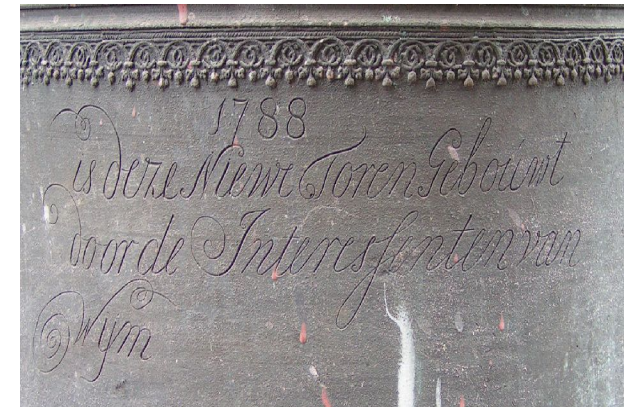 1788
is deze Niewe Toren Geboüwt
door de Interessenten van
Wÿm